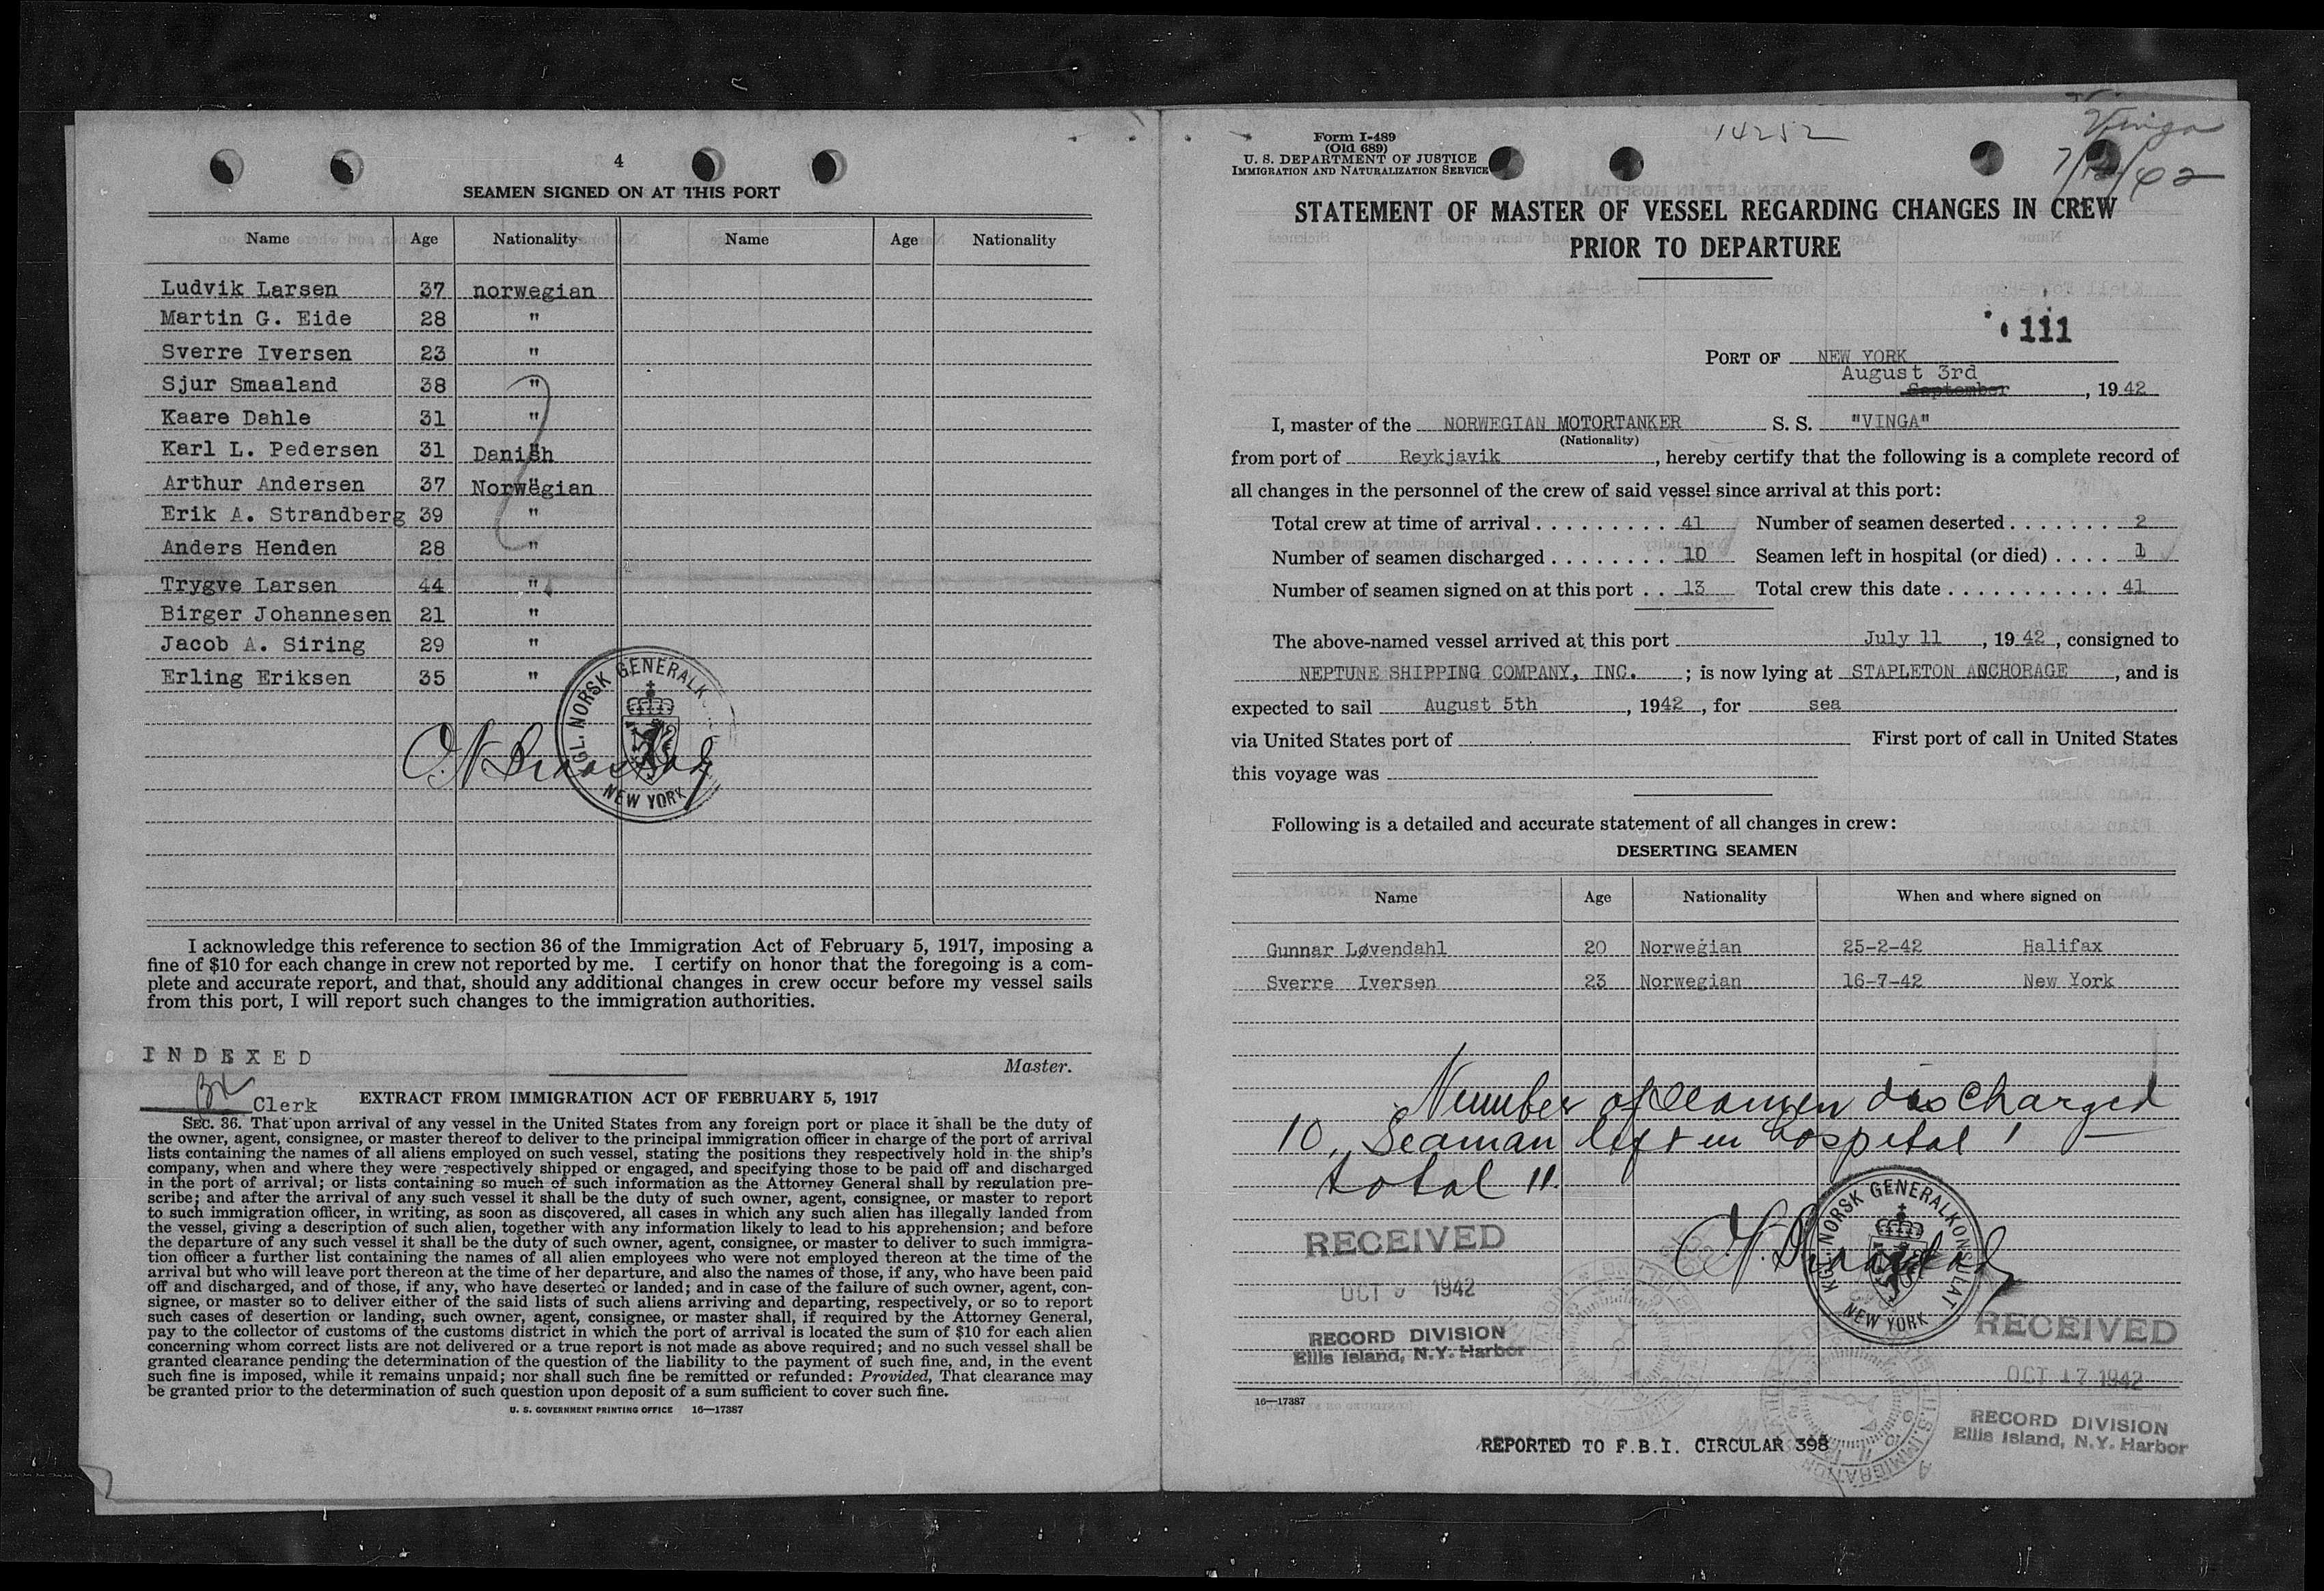 4
SEAMEN SIGNED ON AT THIS PORT
Name Age Nationality Name Age Nationality
Ludvik Larsen 37 norwegian
Martin G. Eide 28 "
Sverre Iversen 23 "
Sjur Smaaland 38 "
Kaare Dahle 31 "
Karl L. Pedersen 31 Danish
Arthur Andersen 37 Norwegian
Erik A. Strandberg 39 "
Anders Henden 28 "
Trygve Larsen 44 "
Birger Johannesen 21 "
Jacob A. Siring 29 "
Erling Eriksen 35 "
GL. NORSK GENERALK
NEW YORK
I acknowledge this reference to section 36 of the Immigration Act of February 5, 1917, imposing a
fine of $10 for each change in crew not reported by me. I certify on honor that the foregoing is a com-
plete and accurate report, and that, should any additional changes in crew occur before my vessel sails
from this port, I will report such changes to the immigration authorities.
INDEXED
Master.
Clerk
EXTRACT FROM IMMIGRATION ACT OF FEBRUARY 5, 1917
SEC. 36. That upon arrival of any vessel in the United States from any foreign port or place it shall be the duty of
the owner, agent, consignee, or master thereof to deliver to the principal immigration officer in charge of the port of arrival
lists containing the names of all aliens employed on such vessel, stating the positions they respectively hold in the ship's
company, when and where they were respectively shipped or engaged, and specifying those to be paid off and discharged
in the port of arrival; or lists containing so much of such information as the Attorney General shall by regulation pre-
scribe; and after the arrival of any such vessel it shall be the duty of such owner, agent, consignee, or master to report
to such immigration officer, in writing, as soon as discovered, all cases in which any such alien has illegally landed from
the vessel, giving a description of such alien, together with any information likely to lead to his apprehension; and before
the departure of any such vessel it shall be the duty of such owner, agent, consignee, or master to deliver to such immigra-
tion officer a further list containing the names of all alien employees who were not employed thereon at the time of the
arrival but who will leave port thereon at the time of her departure, and also the names of those, if any, who have been paid
off and discharged, and of those, if any, who have deserted or landed; and in case of the failure of such owner, agent, con-
signee, or master so to deliver either of the said lists of such aliens arriving and departing, respectively, or so to report
such cases of desertion or landing, such owner, agent, consignee, or master shall, if required by the Attorney General,
pay to the collector of customs of the customs district in which the port of arrival is located the sum of $10 for each alien
concerning whom correct lists are not delivered or a true report is not made as above required; and no such vessel shall be
granted clearance pending the determination of the question of the liability to the payment of such fine, and, in the event
such fine is imposed, while it remains unpaid; nor shall such fine be remitted or refunded: Provided, That clearance may
be granted prior to the determination of such question upon deposit of a sum sufficient to cover such fine.
U. S. GOVERNMENT PRINTING OFFICE 16—17387
Form I-489
(Old 689)
U. S. DEPARTMENT OF JUSTICE
IMMIGRATION AND NATURALIZATION SERVICE
14252
Vinga
STATEMENT OF MASTER OF VESSEL REGARDING CHANGES IN CREW
PRIOR TO DEPARTURE
111
PORT OF NEW YORK
August 3rd
September, 1942
I, master of the NORWEGIAN MOTORTANKER S. S. "VINGA"
(Nationality)
from port of Reykjavik, hereby certify that the following is a complete record of
all changes in the personnel of the crew of said vessel since arrival at this port:
Total crew at time of arrival . . . . . . . . . 41 Number of seamen deserted . . . . . . . 2
Number of seamen discharged . . . . . . . . 10 Seamen left in hospital (or died) . . . . 1
Number of seamen signed on at this port . . 13 Total crew this date . . . . . . . . . . . 41
The above-named vessel arrived at this port July 11, 1942, consigned to
NEPTUNE SHIPPING COMPANY, INC. ; is now lying at STAPLETON ANCHORAGE, and is
expected to sail August 5th, 1942, for sea
via United States port of First port of call in United States
this voyage was
Following is a detailed and accurate statement of all changes in crew:
DESERTING SEAMEN
Name Age Nationality When and where signed on
Gunnar Løvendahl 20 Norwegian 25-2-42 Halifax
Sverre Iversen 23 Norwegian 16-7-42 New York
Number of seamen discharged
10, Seaman left in hospital 1
total 11.
KGL. NORSK GENERALKONSULAT
NEW YORK
RECEIVED
OCT 9 1942
RECORD DIVISION
Ellis Island, N.Y. Harbor
RECEIVED
OCT 17 1942
RECORD DIVISION
Ellis Island, N.Y. Harbor
16—17387
REPORTED TO F.B.I. CIRCULAR 398